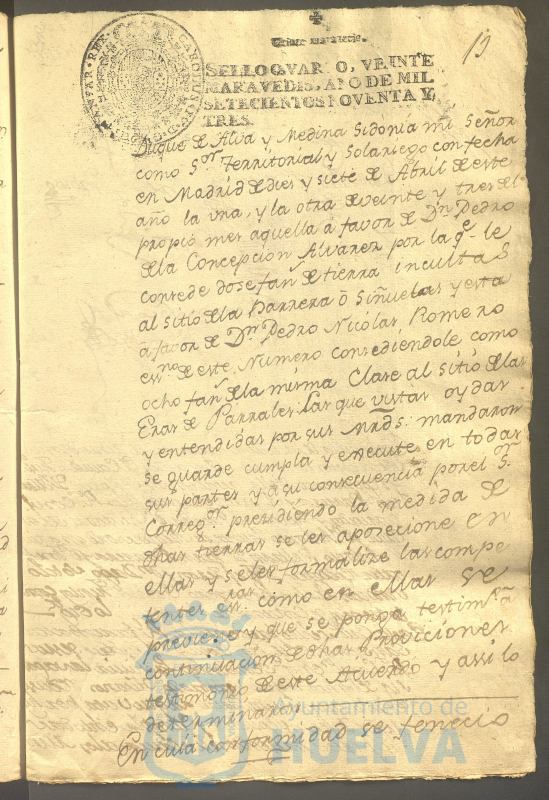 13
SELLO QVARTO, VEINTE
MARAVEDIS, AÑO DE MIL
SETECIENTOS NOVENTA Y
TRES.
Duque de Alva y Medina Sidonia mi Señor
como S.or Territorial y Solariego con fecha
en Madrid diez y siete de Abril de este
año la una, y la otra de veinte y tres del
propio mes aquella á favor de Dn. Pedro
de la Concepcion Alvarez por la q.e le
consede dose fan.s de tierra incultas
al sitio de la Barrera ó Siñuelas y esta
á favor de Dn. Pedro Nicolas Romero
ess.no de este Numero consediendole como
ocho fan.s de la misma Clase al sitio de las
Eras de Parrales: Las que vistas oydas
y entendidas por sus Mrds. mandaron
se guarde cumpla y execute en todas
sus partes y á su consecuencia por el S.or
Correg.or presidiendo la medida de
dhas tierras se les aposecione en
ellas y se les formalize las compe
tentes ess.ras como en ellas se
previene y que se ponga testim.o á
continuacion de dhas Provicciones
testimonio de este Acuerdo y assi lo
determinaron
En cuia conformidad se fenecio
Ayuntamiento de
HUELVA